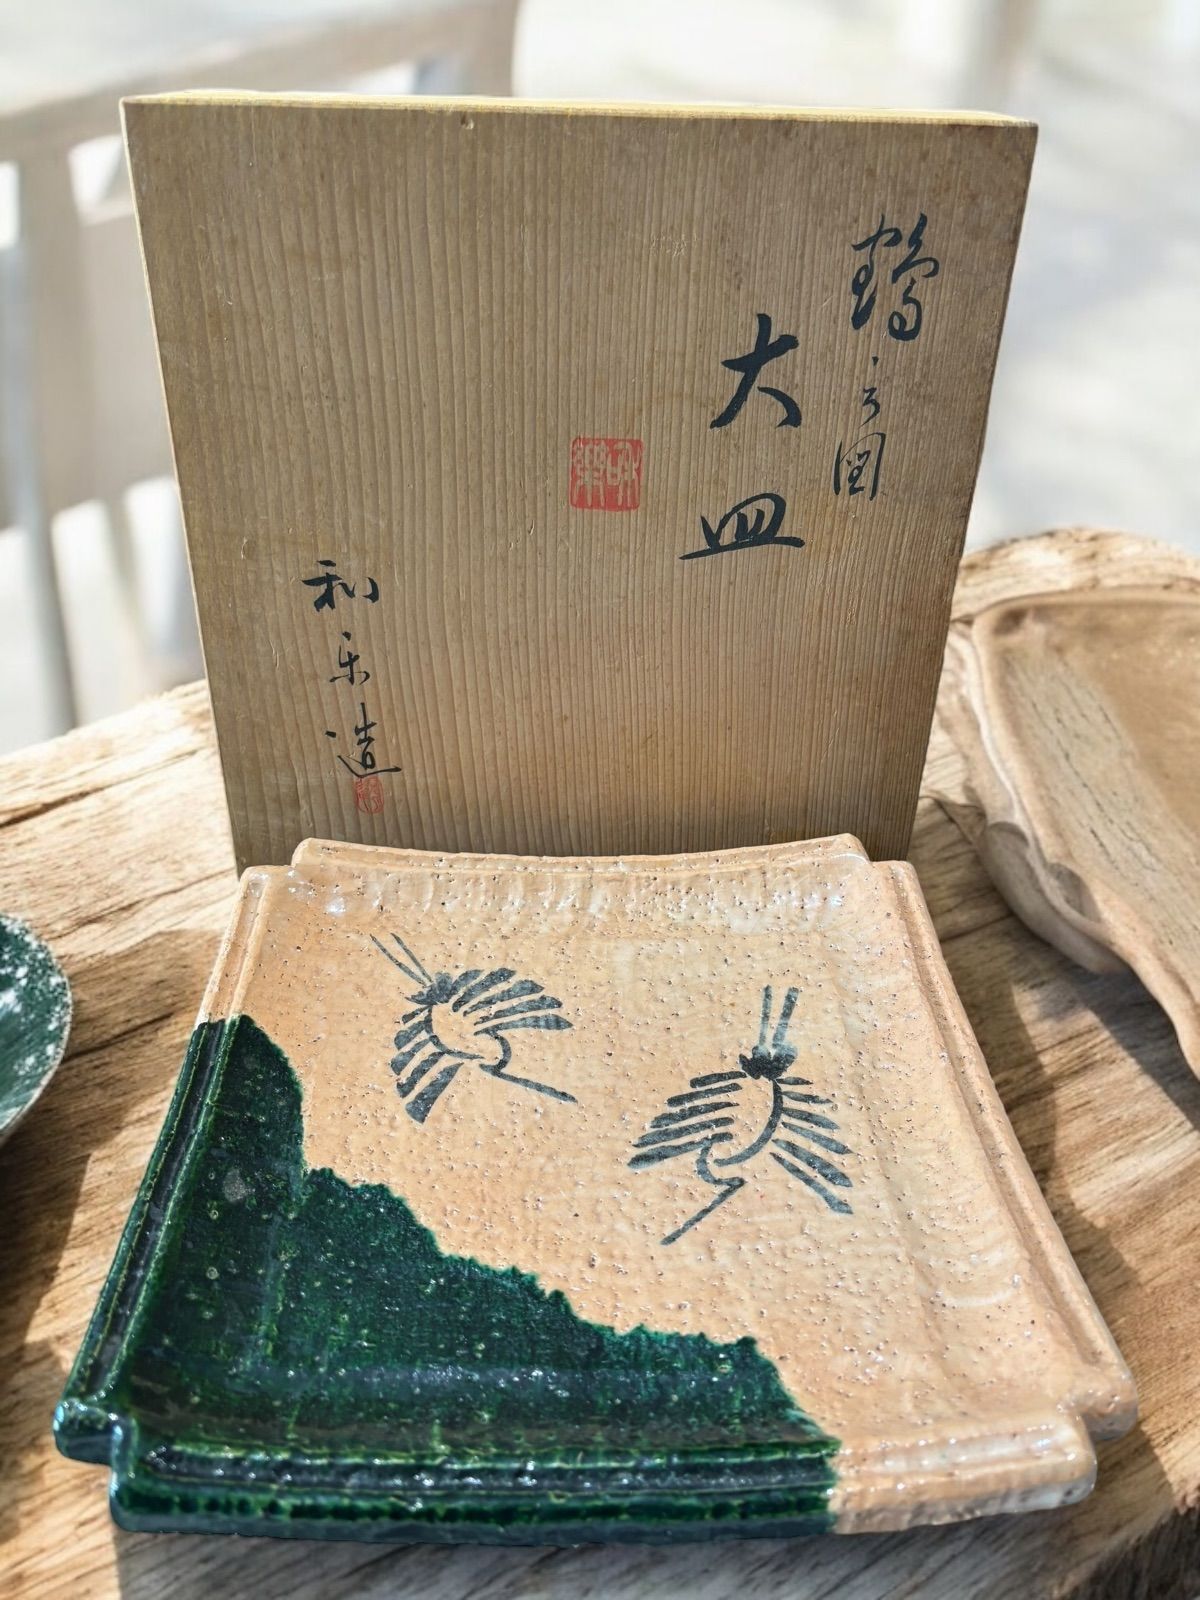 鶴之図
大皿
和楽
和楽造